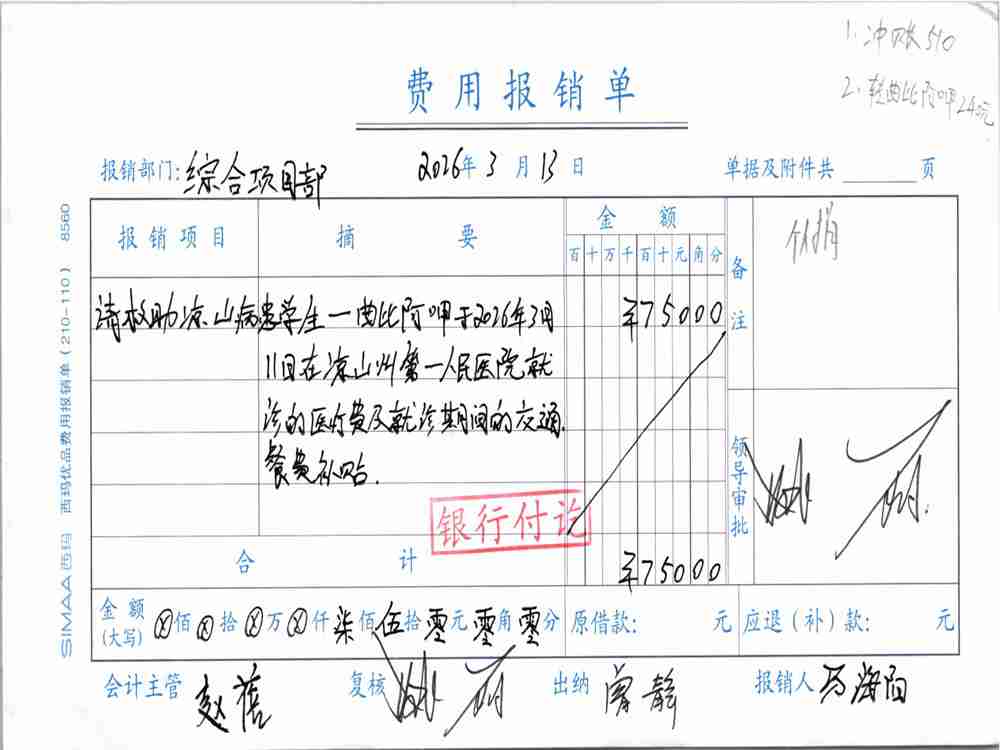 1. 冲账510
2. 转曲比阿呷240元
费用报销单
报销部门: 综合项目部 2026年3月13日 单据及附件共 页
报销项目 摘要 金额 备注
百十万千百十元角分
个捐
请救助凉山病患学生一曲比阿呷于2026年3月 ¥75000
11日在凉山州第一人民医院就
诊的医疗费及就诊期间的交通.
餐费补贴.
领导审批
银行付讫
合计 ¥75000
金额(大写) ⊗佰⊗拾⊗万⊗仟柒佰伍拾零元零角零分 原借款: 元 应退(补)款: 元
会计主管 赵 复核 出纳 静 报销人 马海阳
SIMAA 西玛 西玛优品费用报销单(210-110) 8560